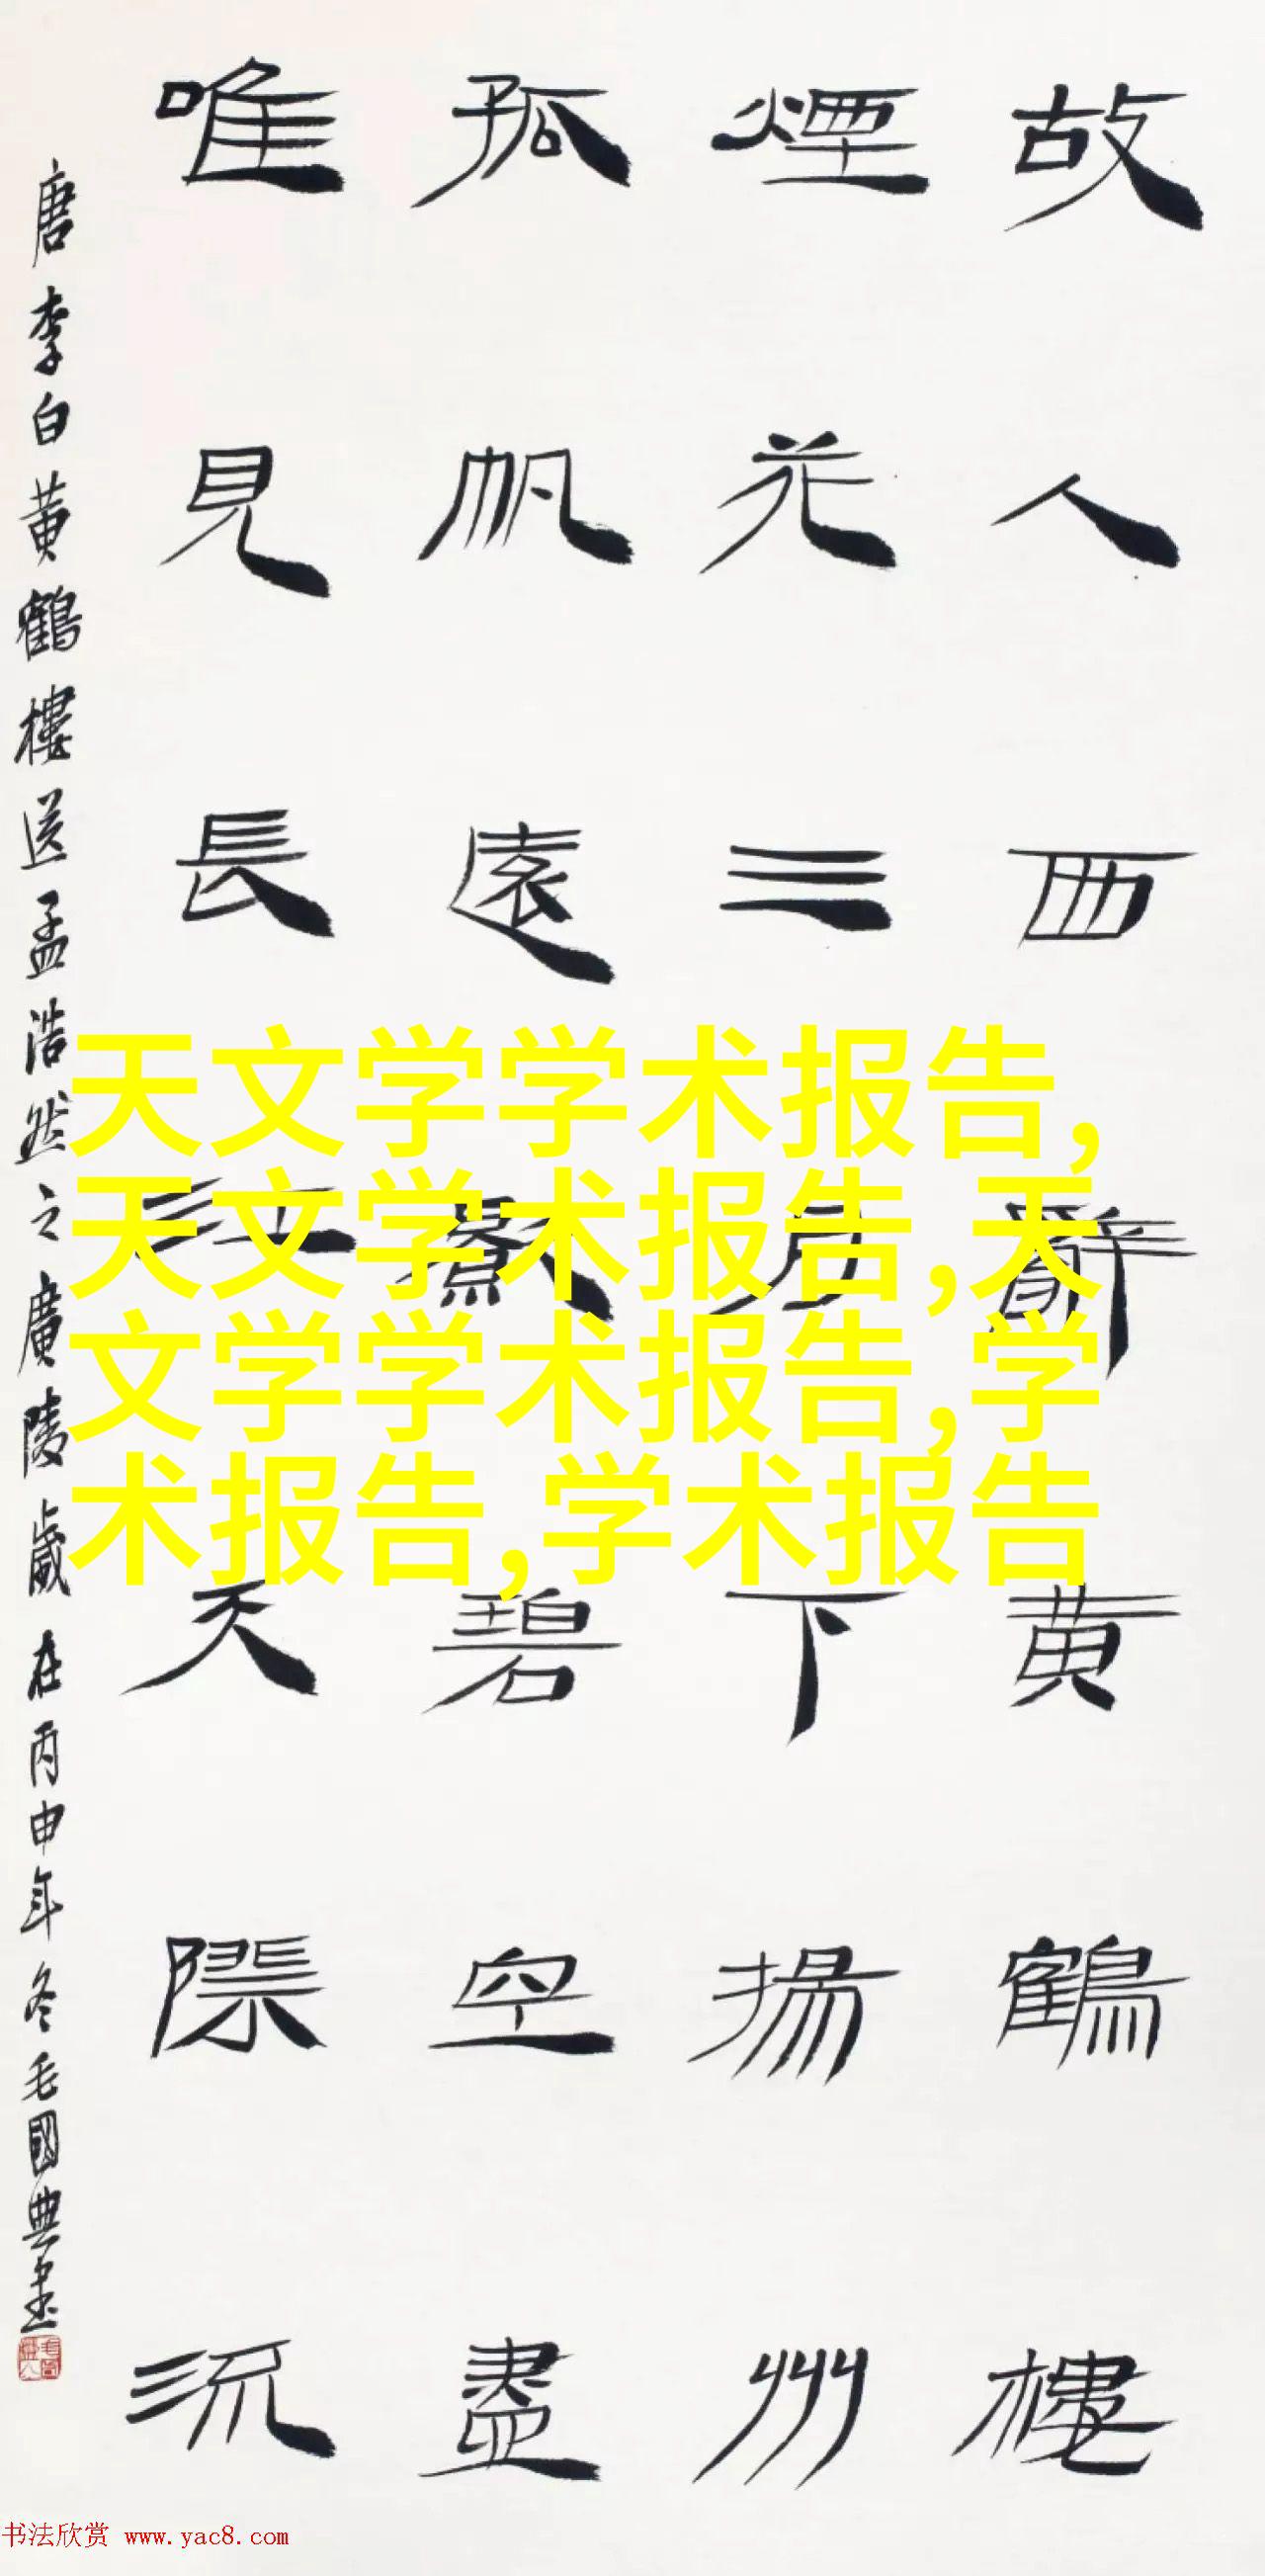 故人西辭黄鶴樓
煙花三月下揚州
孤帆遠影碧空盡
唯見長江天際流
唐李白黄鶴樓送孟浩然之廣陵歲在丙申年冬毛國典書
天文学学术报告,
天文学术报告,天
文学学术报告,学
术报告,学术报告
书法欣赏 www.yac8.com